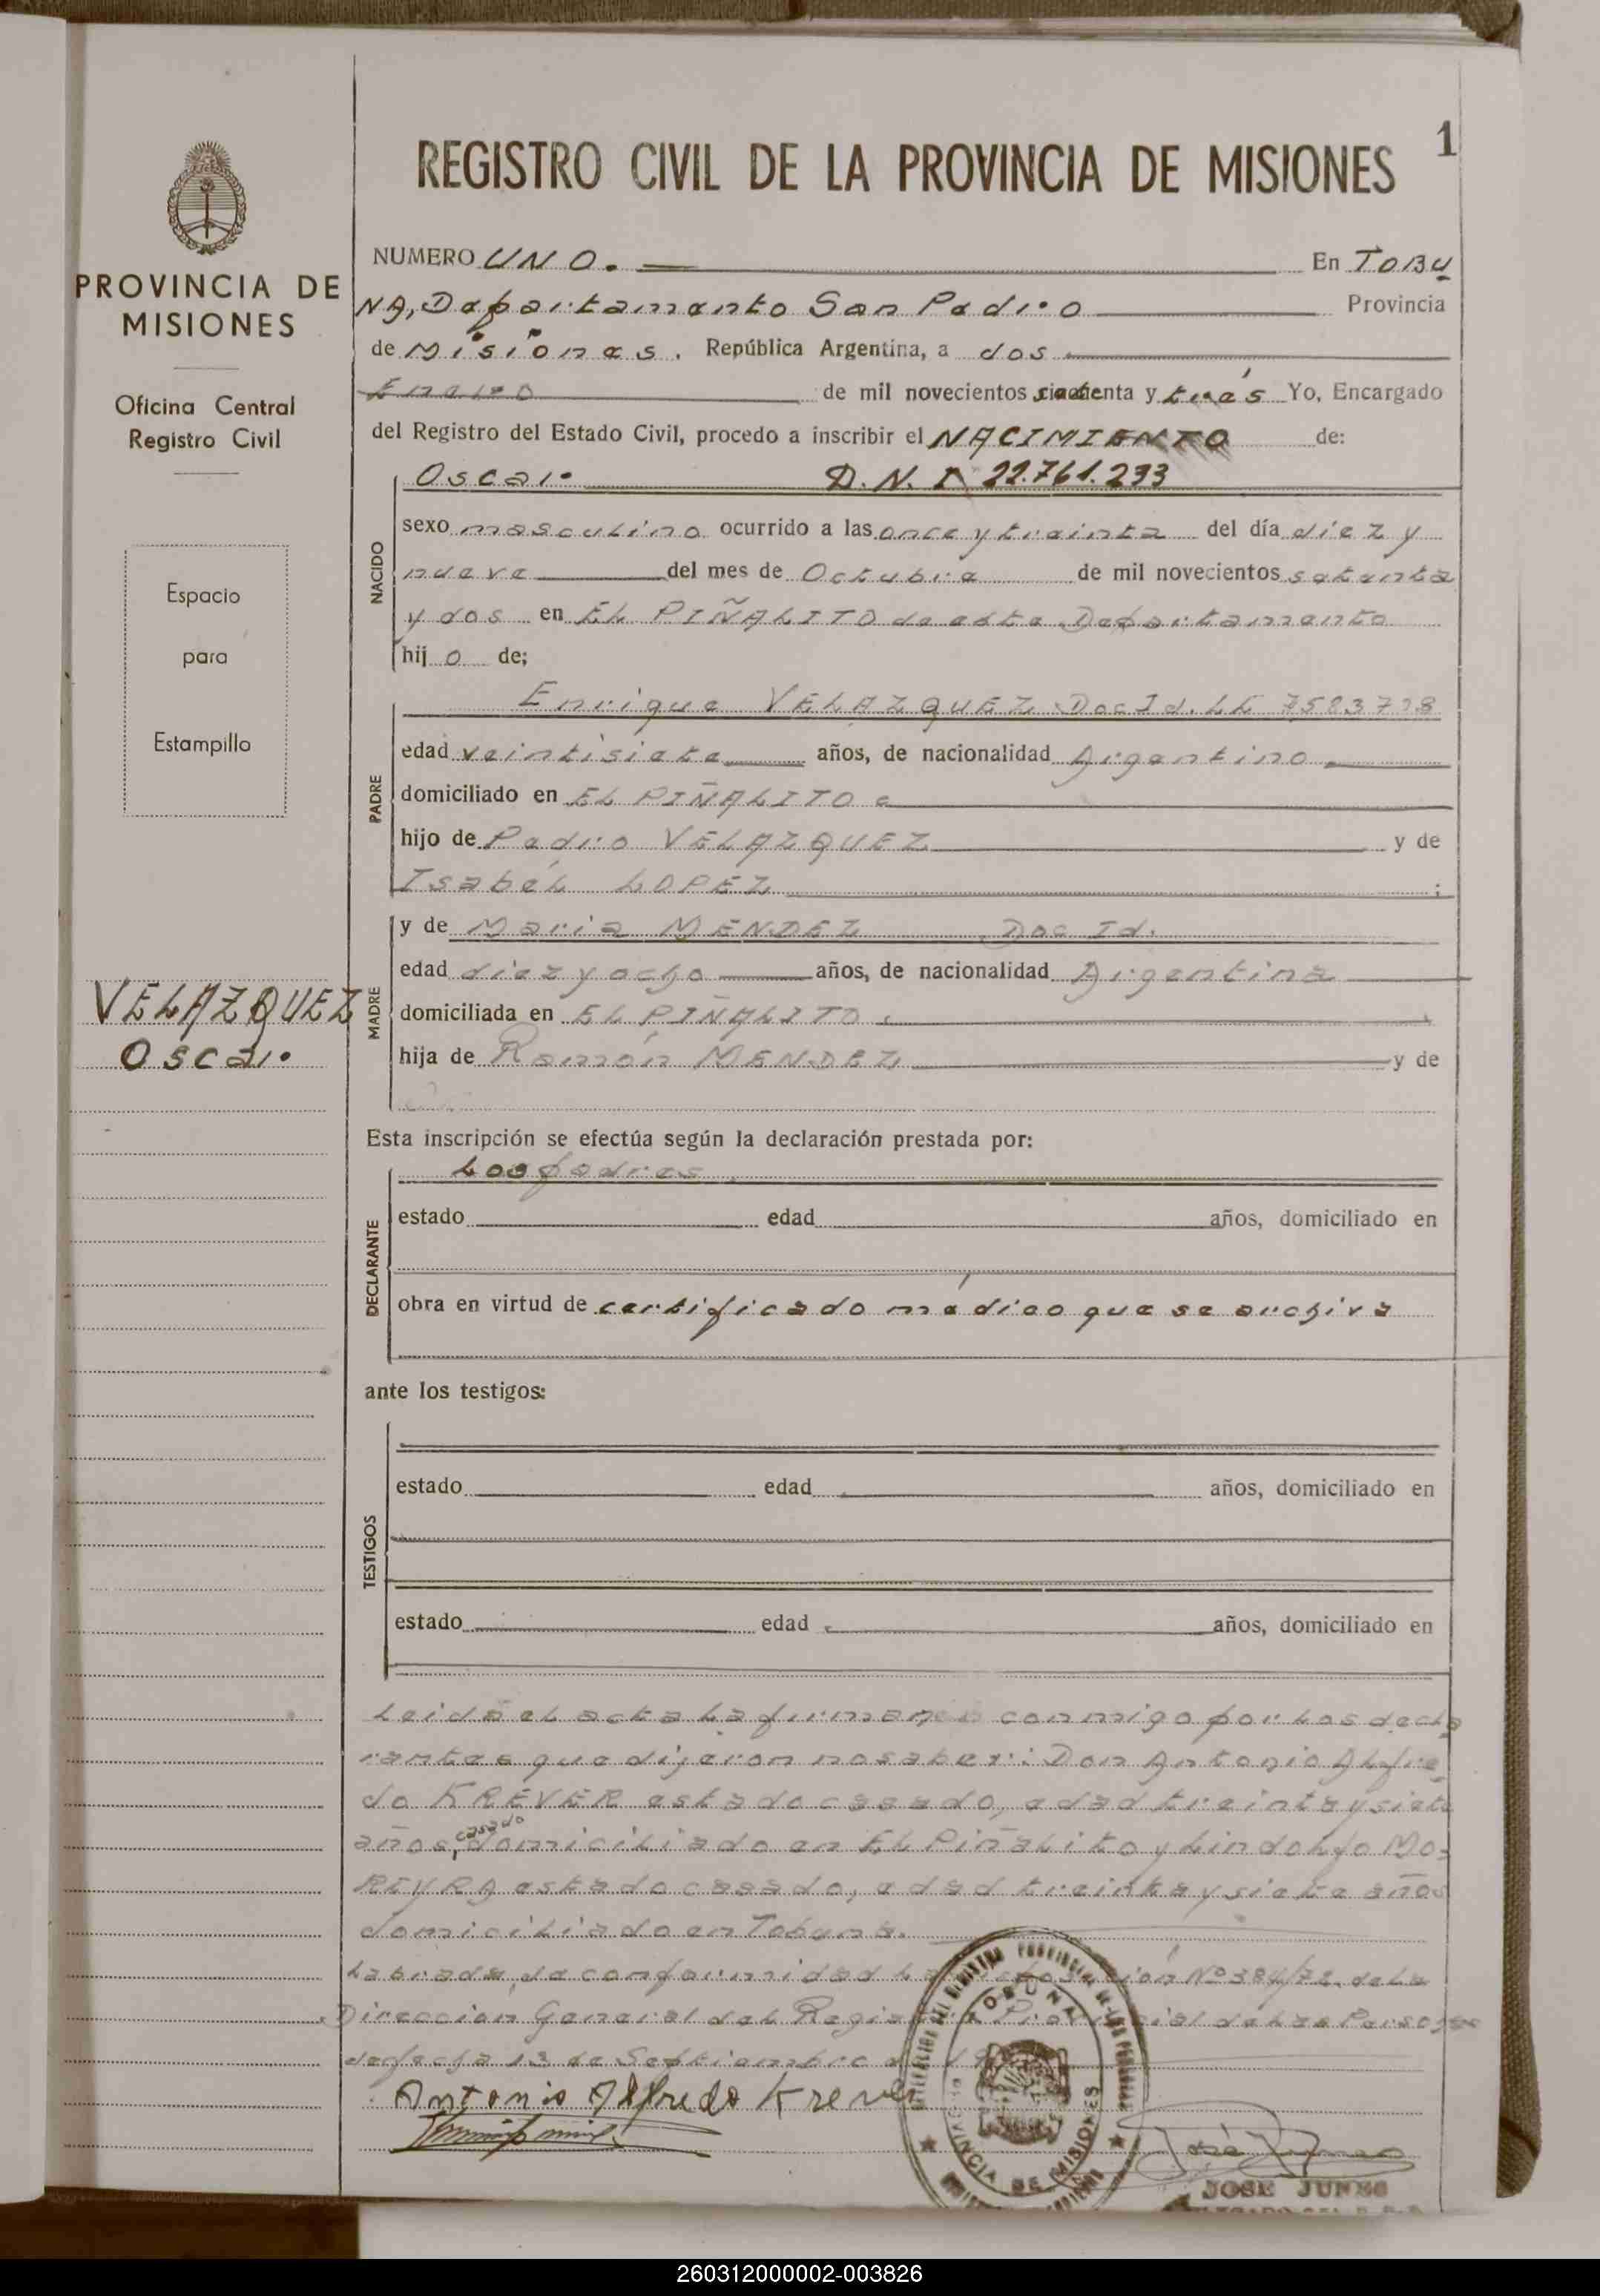 1
REGISTRO CIVIL DE LA PROVINCIA DE MISIONES
PROVINCIA DE
MISIONES
Oficina Central
Registro Civil
Espacio
para
Estampillo
VELAZQUEZ
Oscar
NUMERO UNO. En TOBU
NA, Departamento San Pedro Provincia
de Misiones. República Argentina, a dos
Enero de mil novecientos setenta y trés Yo, Encargado
del Registro del Estado Civil, procedo a inscribir el NACIMIENTO de:
NACIDO
Oscar D.N.I 22.761.293
sexo masculino ocurrido a las once y treinta del día diez y
nueve del mes de Octubre de mil novecientos setenta
y dos en EL PIÑALITO de este Departamento
hijo de;
PADRE
Enrique VELAZQUEZ Doc Id. LE
edad veintisiete años, de nacionalidad Argentino
domiciliado en EL PIÑALITO
hijo de Pedro VELAZQUEZ y de
Isabél LOPEZ ;
MADRE
y de Maria MENDEZ Doc Id.
edad diez y ocho años, de nacionalidad Argentina
domiciliada en EL PIÑALITO
hija de Ramón MENDEZ y de
Esta inscripción se efectúa según la declaración prestada por:
DECLARANTE
Los padres
estado edad años, domiciliado en
obra en virtud de certificado médico que se archiva
ante los testigos:
TESTIGOS
estado edad años, domiciliado en
estado edad años, domiciliado en
Leida el acta la firman conmigo por los decla
rantes que dijeron no saber: Don Antonio Alfre
do KREVER estado casado, edad treinta y siete
años, casado domiciliado en EL Piñalito y Lindolfo MO-
REYRA estado casado, edad treinta y siete años
domiciliado en Tobuna.
Labrada de conformidad la Nº 384/72 de la
Dirección General del Registro Provincial de las Personas
de fecha 13 de Septiembre
Antonio Alfredo Krever
TOBUNA
PROVINCIA DE MISIONES
JOSE JUNES
260312000002-003826